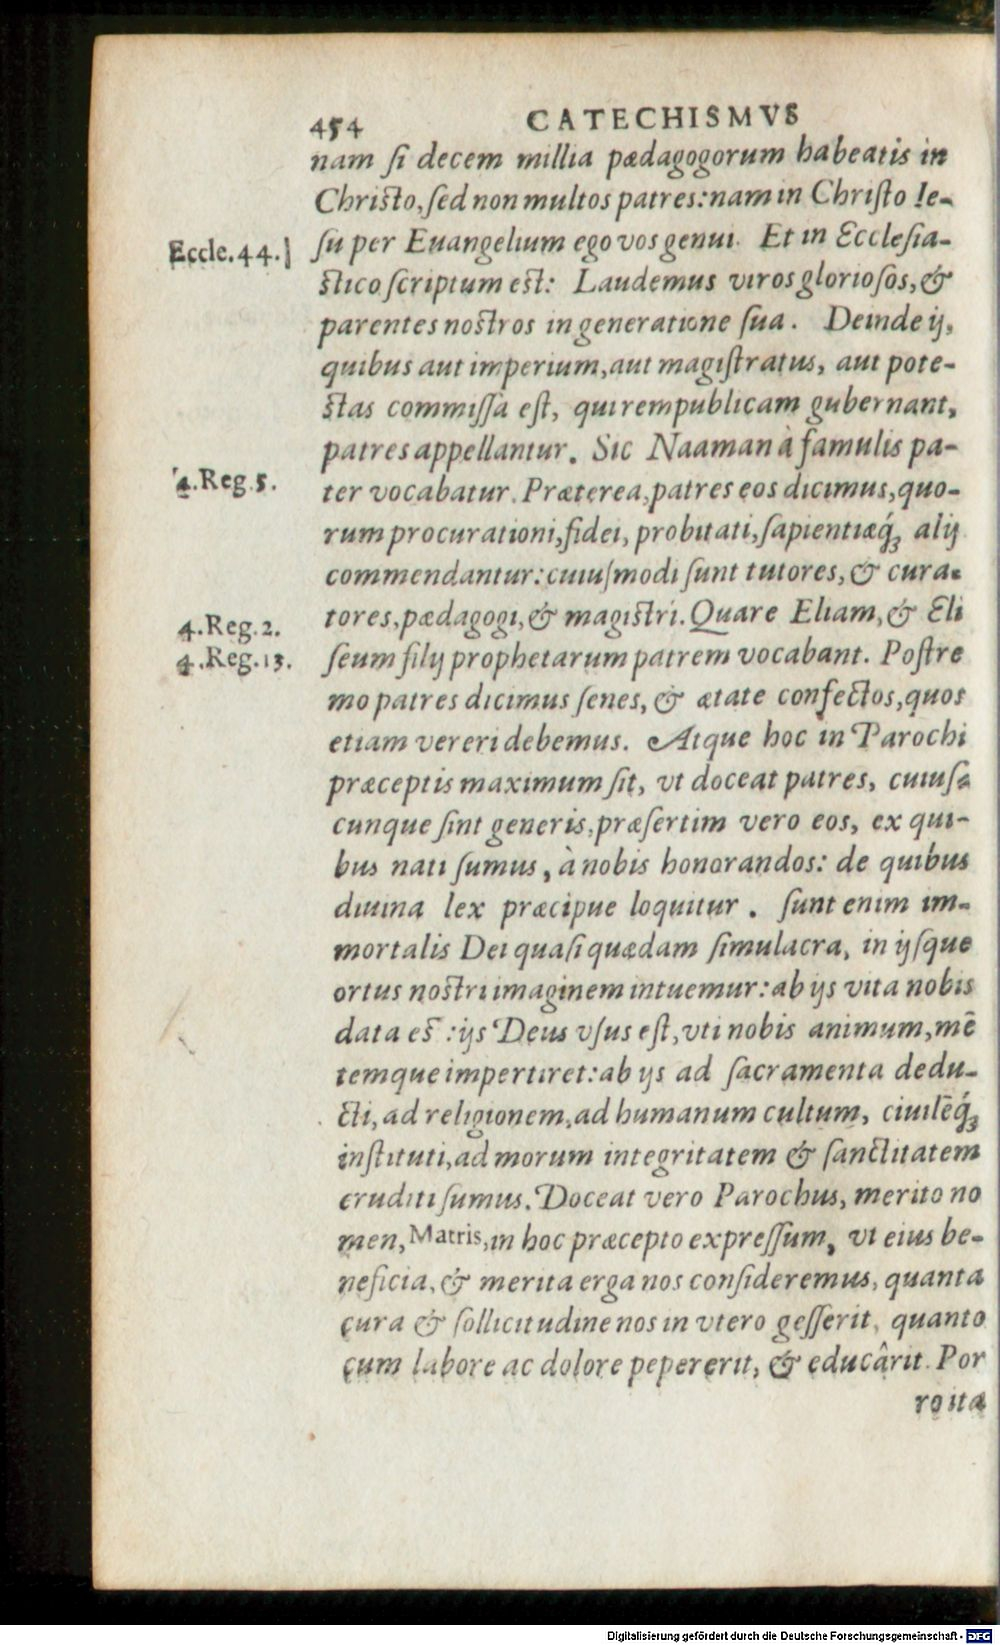 454 CATECHISMVS
nam ſi decem millia pædagogorum habeatis in
Chriſto, ſed non multos patres: nam in Chriſto Ie-
Eccle.44. ſu per Euangelium ego vos genui. Et in Eccleſia-
ſtico ſcriptum eſt: Laudemus viros glorioſos, &
parentes noſtros in generatione ſua. Deinde ij,
quibus aut imperium, aut magiſtratus, aut pote-
ſtas commiſſa eſt, qui rempublicam gubernant,
patres appellantur. Sic Naaman à famulis pa-
4.Reg.5. ter vocabatur. Præterea, patres eos dicimus, quo-
rum procurationi, fidei, probitati, ſapientiæq́ꝫ alij
commendantur: cuiuſmodi ſunt tutores, & cura-
tores, pædagogi, & magiſtri. Quare Eliam, & Eli
4.Reg.2.
4.Reg.13. ſeum filij prophetarum patrem vocabant. Poſtre
mo patres dicimus ſenes, & ætate confectos, quos
etiam vereri debemus. Atque hoc in Parochi
præceptis maximum ſit, vt doceat patres, cuiuſ-
cunque ſint generis, præſertim vero eos, ex qui-
bus nati ſumus, à nobis honorandos: de quibus
diuina lex præcipue loquitur. ſunt enim im-
mortalis Dei quaſi quædam ſimulacra, in ijſque
ortus noſtri imaginem intuemur: ab ijs vita nobis
data eſt: ijs Deus vſus eſt, vti nobis animum, mē
temque impertiret: ab ijs ad ſacramenta dedu-
cti, ad religionem, ad humanum cultum, ciuilēq́ꝫ
inſtituti, ad morum integritatem & ſanctitatem
eruditi ſumus. Doceat vero Parochus, merito no
men, Matris, in hoc præcepto expreſſum, vt eius be-
neficia, & merita erga nos conſideremus, quanta
cura & ſollicitudine nos in vtero geſſerit, quanto
cum labore ac dolore pepererit, & educârit. Por
ro ita
Digitalisierung gefördert durch die Deutsche Forschungsgemeinschaft - DFG